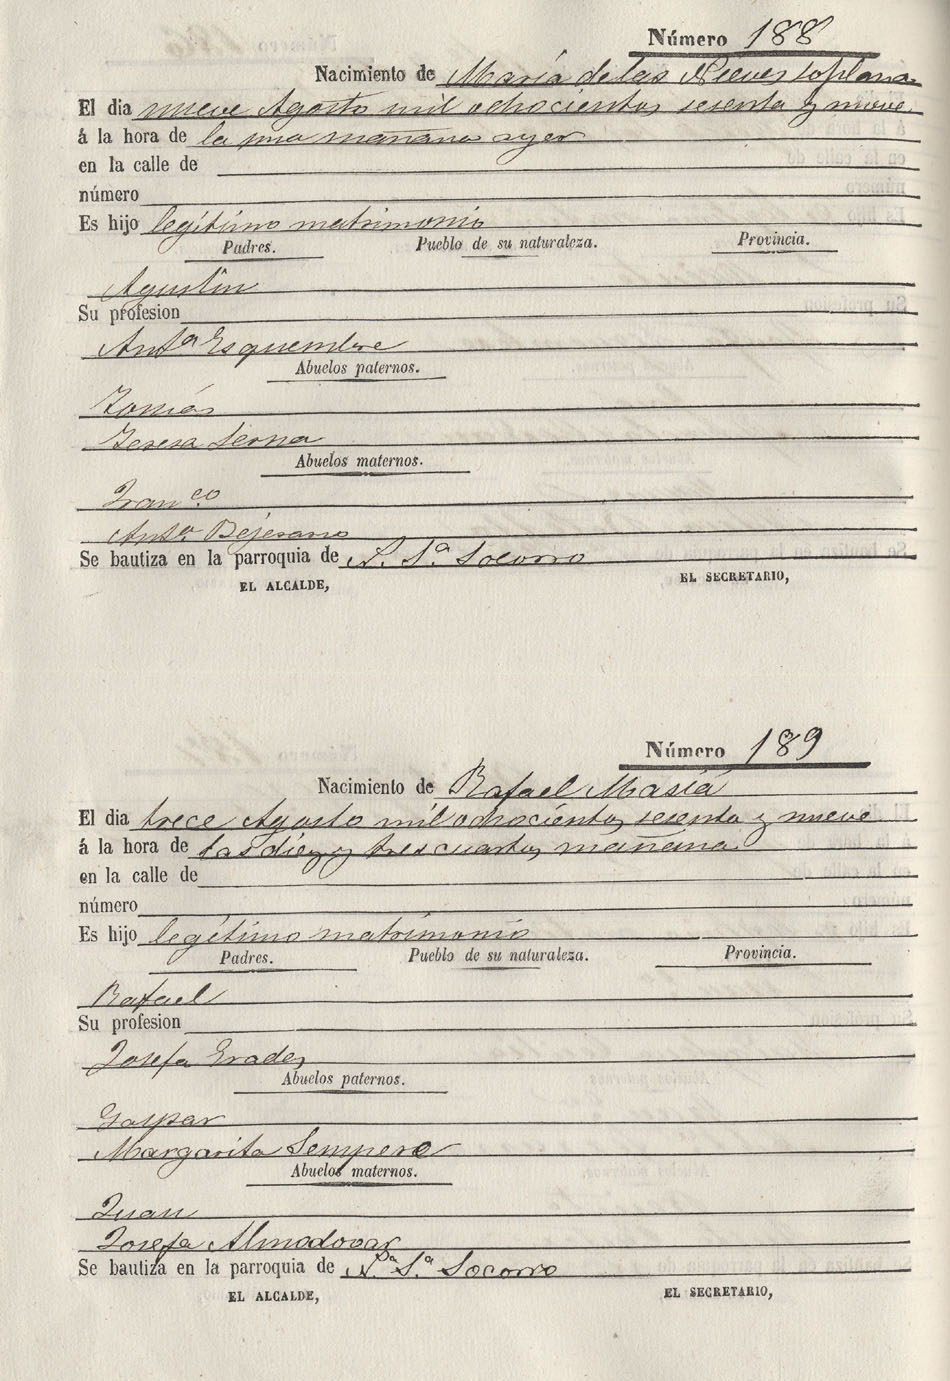 Número 188
Nacimiento de María de las Nieves Soplana
El dia nueve Agosto mil ochocientos sesenta y nueve
á la hora de la una mañana ayer
en la calle de
número
Es hijo legítimo matrimonio
Padres. Pueblo de su naturaleza. Provincia.
Agustin
Su profesion
Antª Esquembre
Abuelos paternos.
Tomás
Teresa Serna
Abuelos maternos.
Franco
Antª Bejerano
Se bautiza en la parroquia de N. Sª Socorro
EL ALCALDE, EL SECRETARIO,
Número 189
Nacimiento de Rafael Masiá
El dia trece Agosto mil ochocientos sesenta y nueve
á la hora de las diez y tres cuartos mañana
en la calle de
número
Es hijo legítimo matrimonio
Padres. Pueblo de su naturaleza. Provincia.
Rafael
Su profesion
Josefa Grades
Abuelos paternos.
Gaspar
Margarita Sempere
Abuelos maternos.
Juan
Josefa Almodovar
Se bautiza en la parroquia de N.ª Sª Socorro
EL ALCALDE, EL SECRETARIO,